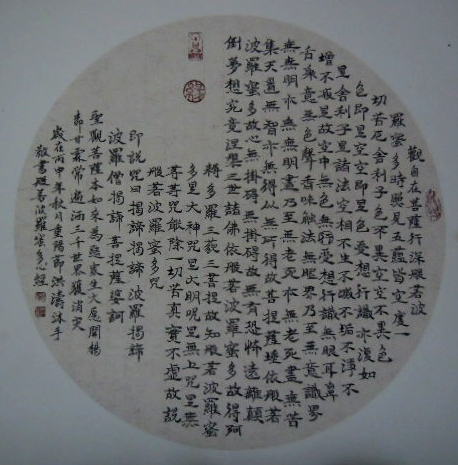 觀自在菩薩行深般若波
羅蜜多時照見五蘊皆空度一
切苦厄舍利子色不異空空不異色
色即是空空即是色受想行識亦復如
是舍利子是諸法空相不生不滅不垢不淨不
增不減是故空中無色無受想行識無眼耳鼻
舌身意無色聲香味觸法無眼界乃至無意識界
無無明亦無無明盡乃至無老死亦無老死盡無苦
集滅道無智亦無得以無所得故菩提薩埵依般若
波羅蜜多故心無掛礙無掛礙故無有恐怖遠離顛
倒夢想究竟涅槃三世諸佛依般若波羅蜜多故得阿
耨多羅三藐三菩提故知般若波羅蜜
多是大神咒是大明咒是無上咒是無
等等咒能除一切苦真實不虛故說
般若波羅蜜多咒
即說咒曰揭諦揭諦波羅揭諦
波羅僧揭諦菩提薩婆訶
聖觀菩薩本如來為愍衆生大願開揚
霖常遍洒三千世界獲消災
歲在丙申年秋月重陽節洪濤沐手
敬書般若波羅蜜多心經